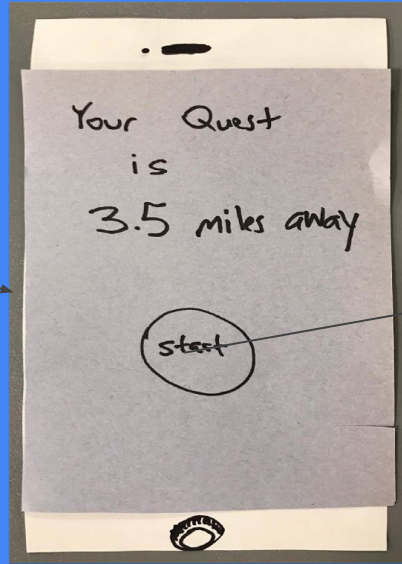 Your Quest
is
3.5 miles away
start